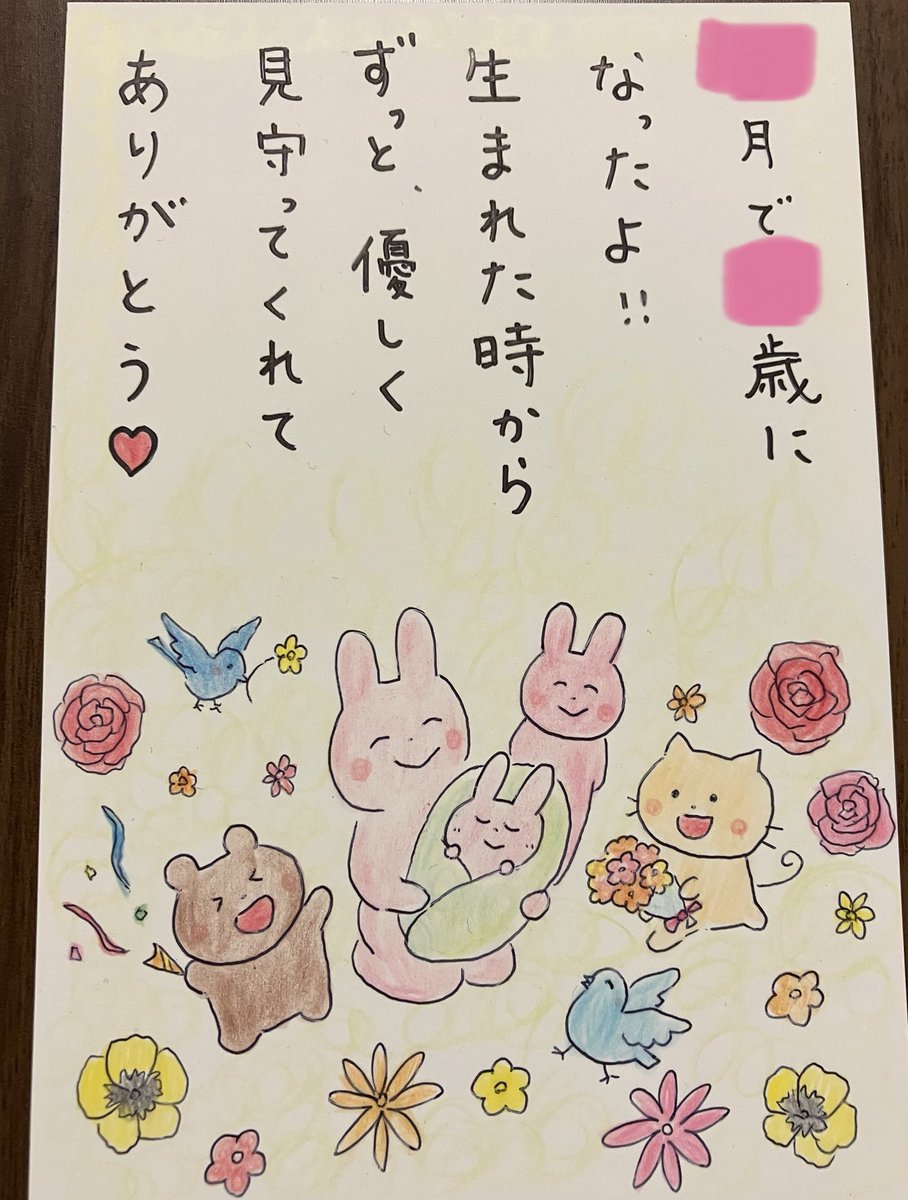 月で歳に
なったよ!!
生まれた時から
ずっと、優しく
見守ってくれて
ありがとう♥